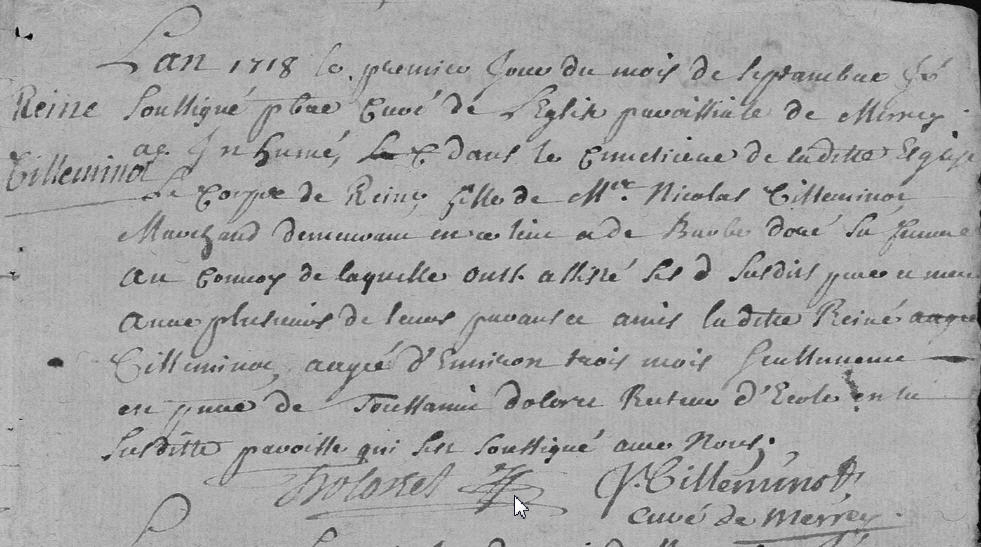 Lan 1718 le premier Jour du mois de Septambre Jé
Reine
Soussigné pbre Curé de L'Eglise paroissiale de Merrey
ae Inhumé, dans le Cimetiere de laditte Eglise
Cilleminot
Le Corps de Reine fille de Mre. Nicolas Cilleminot
Marchand demeurant en ce lieu et de Barbe doué sa femme
au Convoy de laquelle ont assisté ses d susdits pere et mere
avec plusieurs de leurs parans et amis laditte Reine aagée
Cilleminot, aagée d'Environ trois mois Seullement
en pnce de Toussaint dolosne Recteur d'Ecole en la
Susditte paroisse qui sest soussigné avec Nous.
P. Cilleminot
curé de Merrey